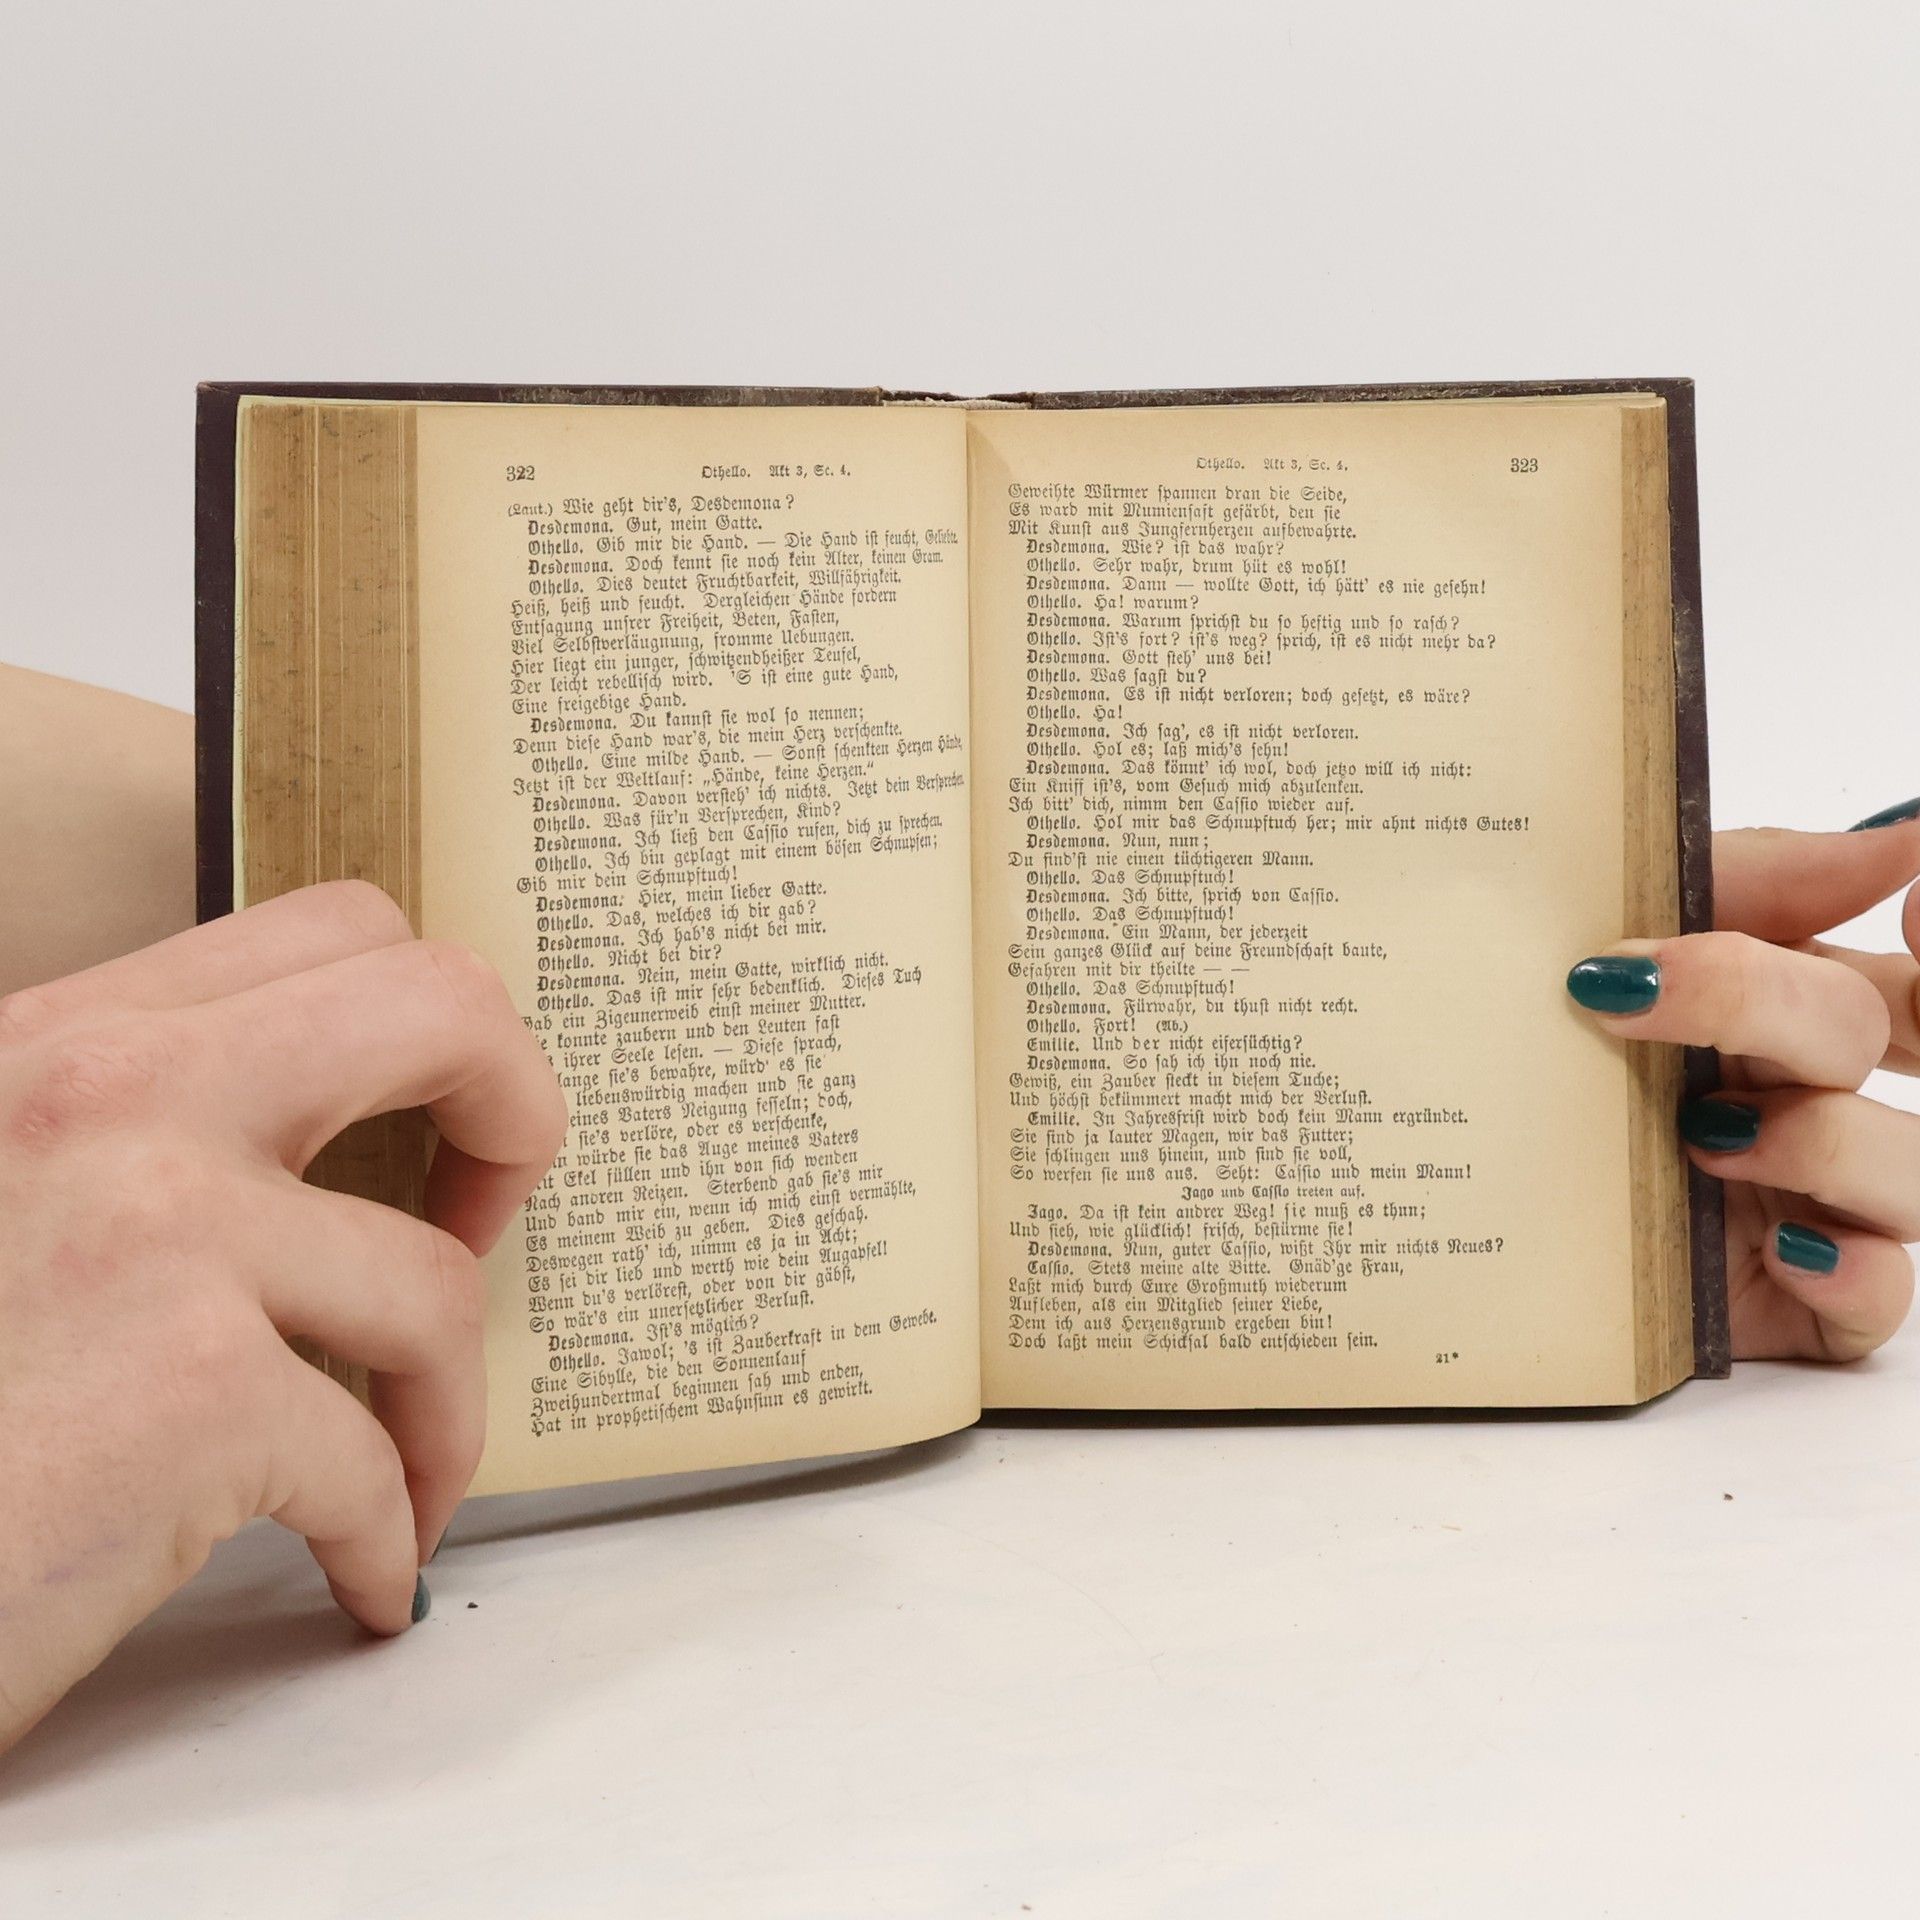 322 Othello. Akt 3, Sc. 4.
(Laut.) Wie geht dir's, Desdemona?
Desdemona. Gut, mein Gatte.
Othello. Gib mir die Hand. — Die Hand ist feucht, Geliebte.
Desdemona. Doch kennt sie noch kein Alter, keinen Gram.
Othello. Dies deutet Fruchtbarkeit, Willfährigkeit.
Heiß, heiß und feucht. Dergleichen Hände fordern
Entsagung unsrer Freiheit, Beten, Fasten,
Viel Selbstverläugnung, fromme Uebungen.
Hier liegt ein junger, schwitzendheißer Teufel,
Der leicht rebellisch wird. 'S ist eine gute Hand,
Eine freigebige Hand.
Desdemona. Du kannst sie wol so nennen;
Denn diese Hand war's, die mein Herz verschenkte.
Othello. Eine milde Hand. — Sonst schenkten Herzen Hände,
Jetzt ist der Weltlauf: „Hände, keine Herzen."
Desdemona. Davon versteh' ich nichts. Jetzt dein Versprechen.
Othello. Was für'n Versprechen, Kind?
Desdemona. Ich ließ den Cassio rufen, dich zu sprechen.
Othello. Ich bin geplagt mit einem bösen Schnupfen;
Gib mir dein Schnupftuch!
Desdemona. Hier, mein lieber Gatte.
Othello. Das, welches ich dir gab?
Desdemona. Ich hab's nicht bei mir.
Othello. Nicht bei dir?
Desdemona. Nein, mein Gatte, wirklich nicht.
Othello. Das ist mir sehr bedenklich. Dieses Tuch
Gab ein Zigeunerweib einst meiner Mutter.
konnte zaubern und den Leuten fast
ihrer Seele lesen. — Diese sprach,
lange sie's bewahre, würd' es sie
liebenswürdig machen und sie ganz
eines Vaters Neigung fesseln; doch,
sie's verlöre, oder es verschenke,
würde sie das Auge meines Vaters
Mit Ekel füllen und ihn von sich wenden
Nach andren Reizen. Sterbend gab sie's mir
Und band mir ein, wenn ich mich einst vermählte,
Es meinem Weib zu geben. Dies geschah.
Deswegen rath' ich, nimm es ja in Acht;
Es sei dir lieb und werth wie dein Augapfel!
Wenn du's verlörest, oder von dir gäbst,
So wär's ein unersetzlicher Verlust.
Desdemona. Ist's möglich?
Othello. Jawol; 's ist Zauberkraft in dem Gewebe.
Eine Sibylle, die den Sonnenlauf
Zweihundertmal beginnen sah und enden,
Hat in prophetischem Wahnsinn es gewirkt.
Othello. Akt 3, Sc. 4. 323
Geweihte Würmer spannen dran die Seide,
Es ward mit Mumiensaft gefärbt, den sie
Mit Kunst aus Jungfernherzen aufbewahrte.
Desdemona. Wie? ist das wahr?
Othello. Sehr wahr, drum hüt es wohl!
Desdemona. Dann — wollte Gott, ich hätt' es nie gesehn!
Othello. Ha! warum?
Desdemona. Warum sprichst du so heftig und so rasch?
Othello. Ist's fort? ist's weg? sprich, ist es nicht mehr da?
Desdemona. Gott steh' uns bei!
Othello. Was sagst du?
Desdemona. Es ist nicht verloren; doch gesetzt, es wäre?
Othello. Ha!
Desdemona. Ich sag', es ist nicht verloren.
Othello. Hol es; laß mich's sehn!
Desdemona. Das könnt' ich wol, doch jetzo will ich nicht:
Ein Kniff ist's, vom Gesuch mich abzulenken.
Ich bitt' dich, nimm den Cassio wieder auf.
Othello. Hol mir das Schnupftuch her; mir ahnt nichts Gutes!
Desdemona. Nun, nun;
Du find'st nie einen tüchtigeren Mann.
Othello. Das Schnupftuch!
Desdemona. Ich bitte, sprich von Cassio.
Othello. Das Schnupftuch!
Desdemona. Ein Mann, der jederzeit
Sein ganzes Glück auf deine Freundschaft baute,
Gefahren mit dir theilte — —
Othello. Das Schnupftuch!
Desdemona. Fürwahr, du thust nicht recht.
Othello. Fort! (Ab.)
Emilie. Und der nicht eifersüchtig?
Desdemona. So sah ich ihn noch nie.
Gewiß, ein Zauber steckt in diesem Tuche;
Und höchst bekümmert macht mich der Verlust.
Emilie. In Jahresfrist wird doch kein Mann ergründet.
Sie sind ja lauter Magen, wir das Futter;
Sie schlingen uns hinein, und sind sie voll,
So werfen sie uns aus. Seht: Cassio und mein Mann!
Jago und Cassio treten auf.
Jago. Da ist kein andrer Weg! sie muß es thun;
Und sieh, wie glücklich! frisch, bestürme sie!
Desdemona. Nun, guter Cassio, wißt Ihr mir nichts Neues?
Cassio. Stets meine alte Bitte. Gnäd'ge Frau,
Laßt mich durch Eure Großmuth wiederum
Aufleben, als ein Mitglied seiner Liebe,
Dem ich aus Herzensgrund ergeben bin!
Doch laßt mein Schicksal bald entschieden sein.
21*